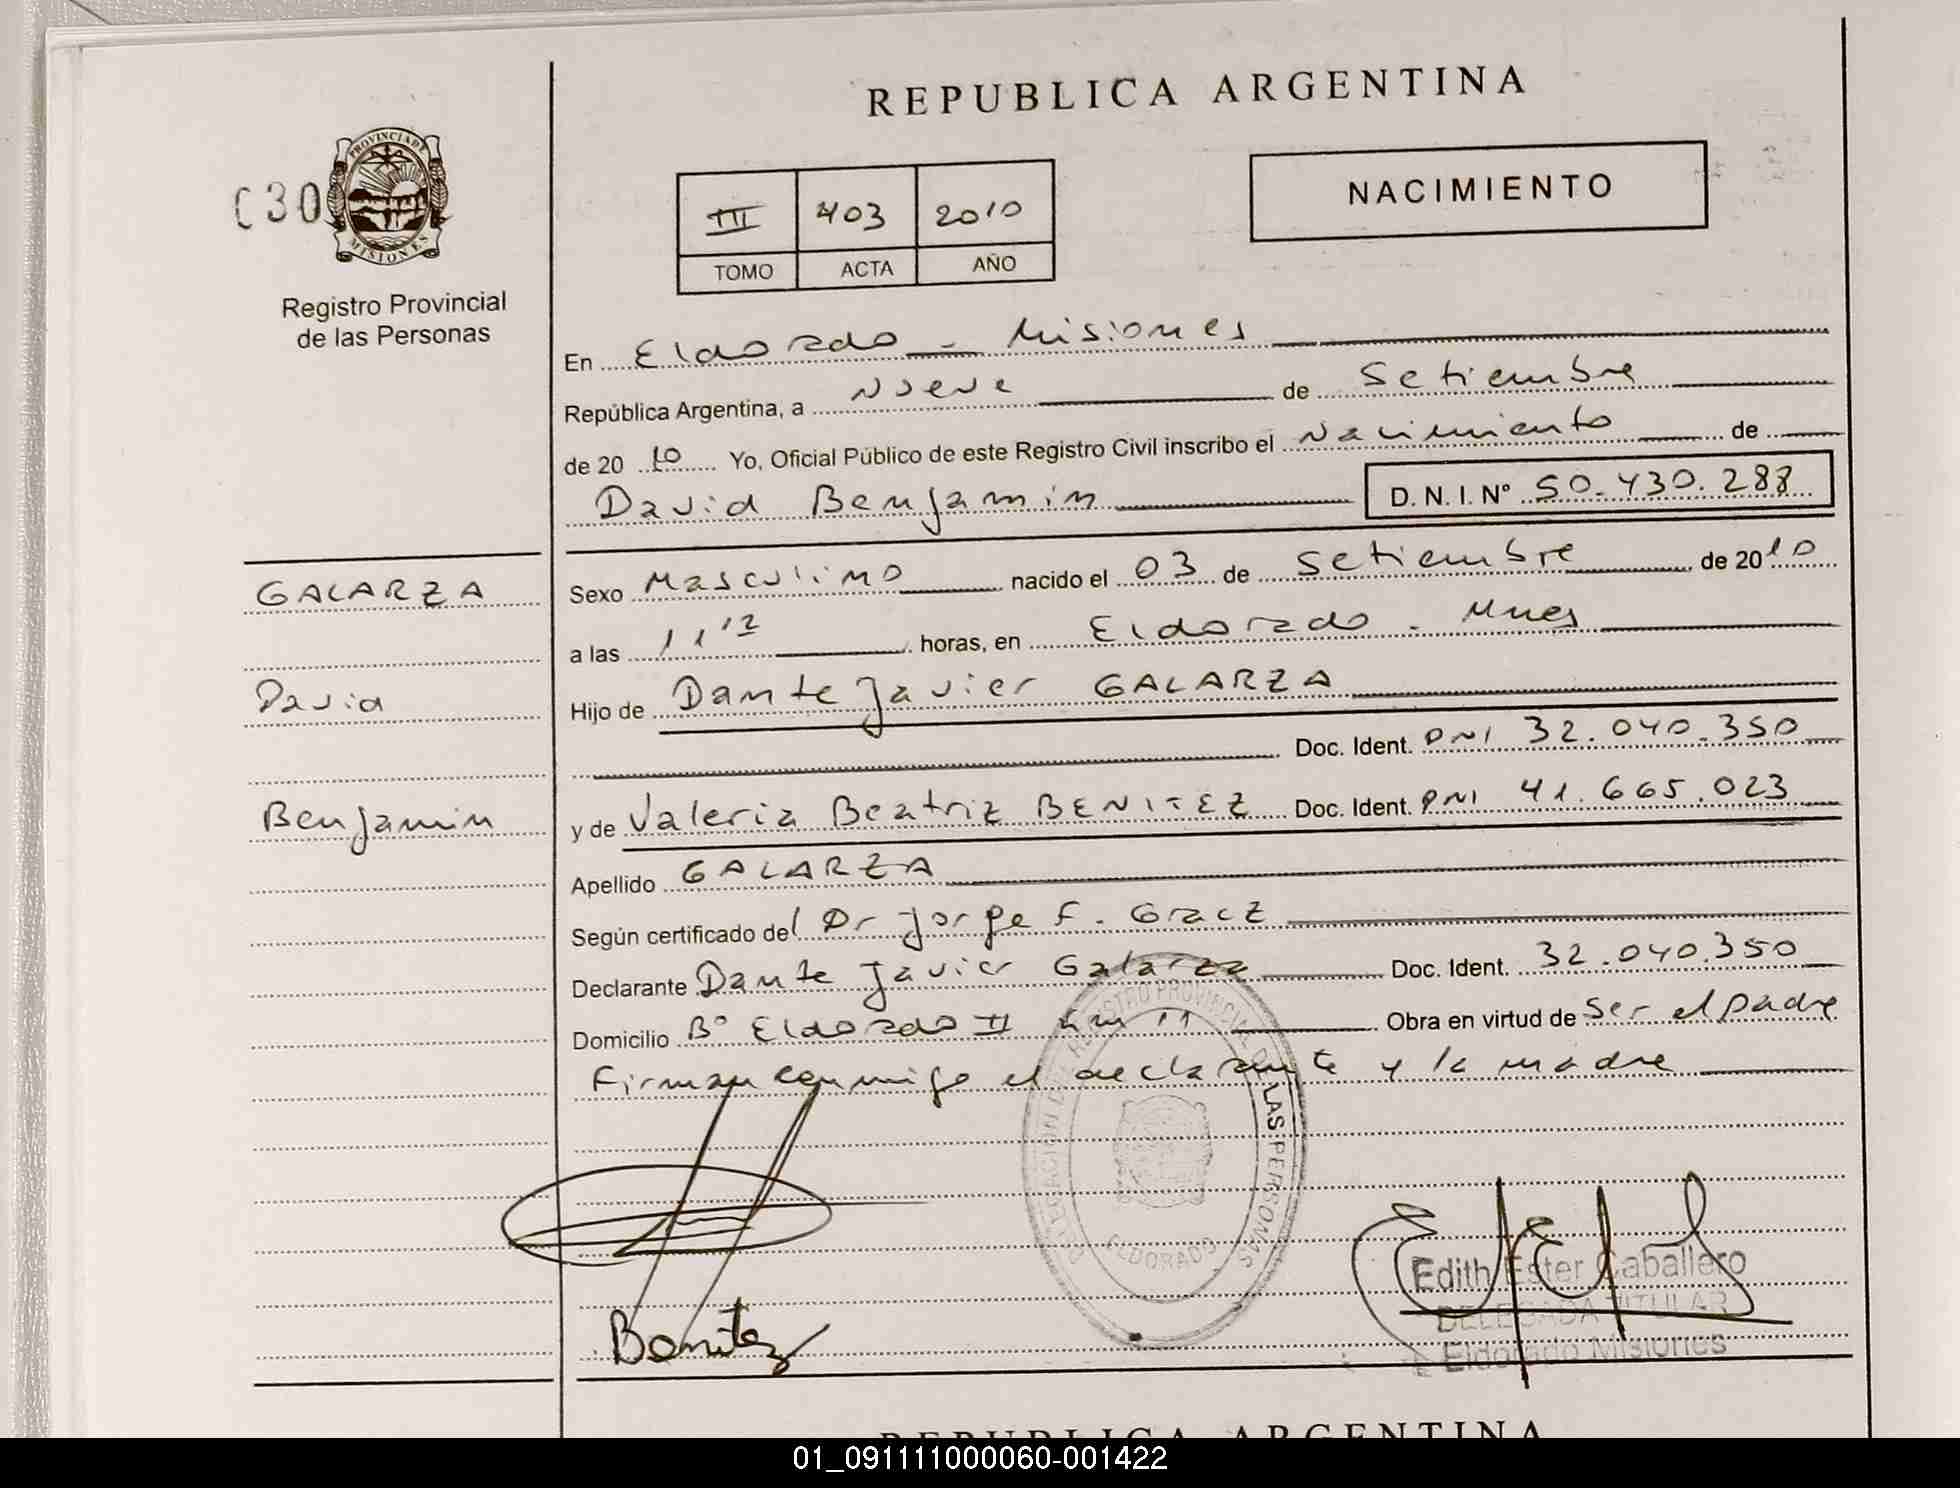 REPUBLICA ARGENTINA
PROVINCIA DE
MISIONES
C30
Registro Provincial
de las Personas
III 403 2010
TOMO ACTA AÑO
NACIMIENTO
En Eldorado - Misiones
República Argentina, a Nueve de Setiembre
de 20 10 Yo, Oficial Público de este Registro Civil inscribo el Nacimiento de
David Benjamin D.N.I. Nº 50.430.288
GALARZA
David
Benjamin
Sexo Masculino nacido el 03 de Setiembre de 2010
a las 11 12 horas, en Eldorado - Mnes
Hijo de Dante Javier GALARZA
Doc. Ident. DNI 32.040.350
y de Valeria Beatriz BENITEZ Doc. Ident. DNI 41.665.023
Apellido GALARZA
Según certificado del Dr Jorge F. Gracz
Declarante Dante Javier Galarza Doc. Ident. 32.040.350
Domicilio Bº Eldorado II km 11 Obra en virtud de Ser el padre
Firman conmigo el declarante y la madre
DELEGACION DEL REGISTRO PROVINCIAL DE LAS PERSONAS
ELDORADO
Benitez
Edith Ester Caballero
DELEGADA TITULAR
Eldorado Misiones
REPUBLICA ARGENTINA
01_091111000060-001422